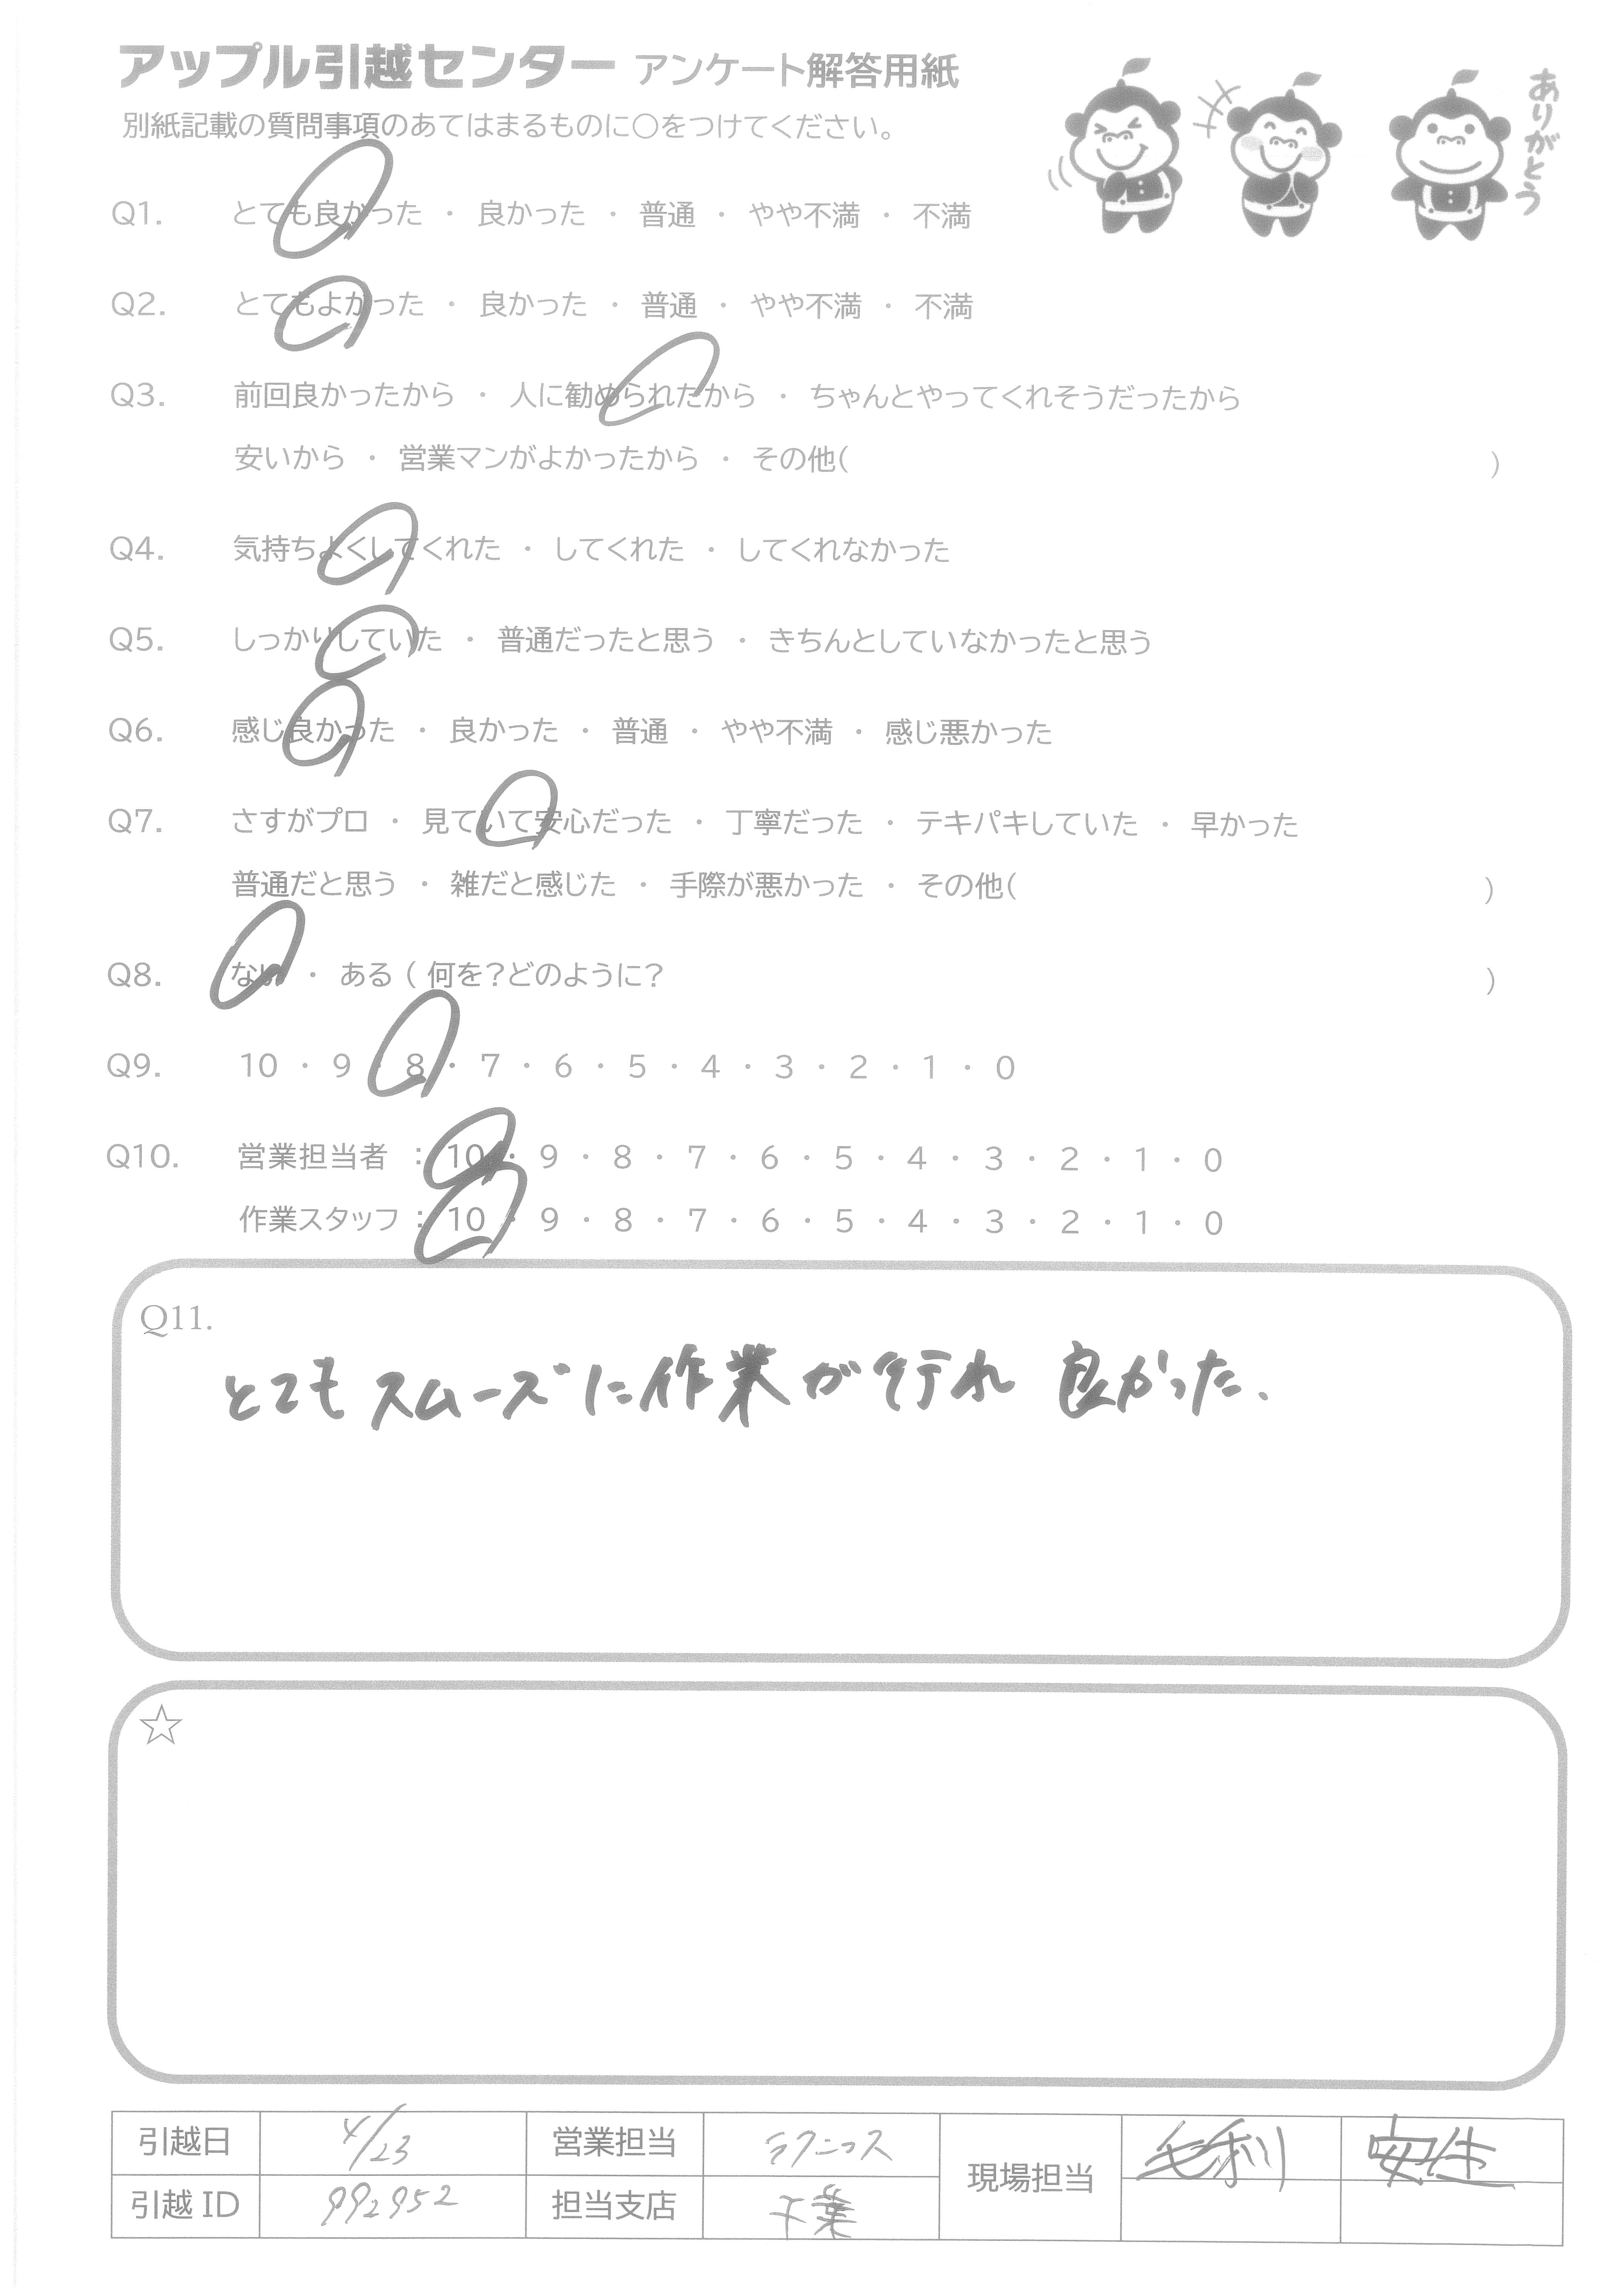 アップル引越センター アンケート解答用紙
別紙記載の質問事項のあてはまるものに○をつけてください。
ありがとう
Q1. とても良かった ・ 良かった ・ 普通 ・ やや不満 ・ 不満
Q2. とてもよかった ・ 良かった ・ 普通 ・ やや不満 ・ 不満
Q3. 前回良かったから ・ 人に勧められたから ・ ちゃんとやってくれそうだったから
安いから ・ 営業マンがよかったから ・ その他( )
Q4. 気持ちよくしてくれた ・ してくれた ・ してくれなかった
Q5. しっかりしていた ・ 普通だったと思う ・ きちんとしていなかったと思う
Q6. 感じ良かった ・ 良かった ・ 普通 ・ やや不満 ・ 感じ悪かった
Q7. さすがプロ ・ 見ていて安心だった ・ 丁寧だった ・ テキパキしていた ・ 早かった
普通だと思う ・ 雑だと感じた ・ 手際が悪かった ・ その他( )
Q8. ない ・ ある ( 何を?どのように? )
Q9. 10 ・ 9 ・ 8 ・ 7 ・ 6 ・ 5 ・ 4 ・ 3 ・ 2 ・ 1 ・ 0
Q10. 営業担当者 : 10 ・ 9 ・ 8 ・ 7 ・ 6 ・ 5 ・ 4 ・ 3 ・ 2 ・ 1 ・ 0
作業スタッフ : 10 ・ 9 ・ 8 ・ 7 ・ 6 ・ 5 ・ 4 ・ 3 ・ 2 ・ 1 ・ 0
Q11.
とてもスムーズに作業が行れ 良かった、
☆
引越日 4/23 営業担当 ラクニコス 現場担当 毛利 安生
引越 ID 992952 担当支店 千葉